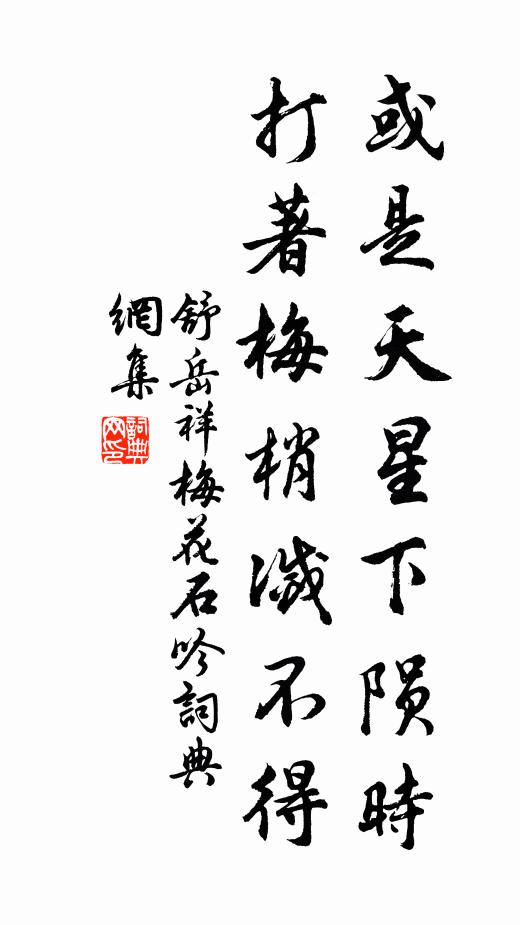 或是天星下陨時
打著梅梢滅不得
舒岳祥梅花石吟詞典
網集
詞典网印